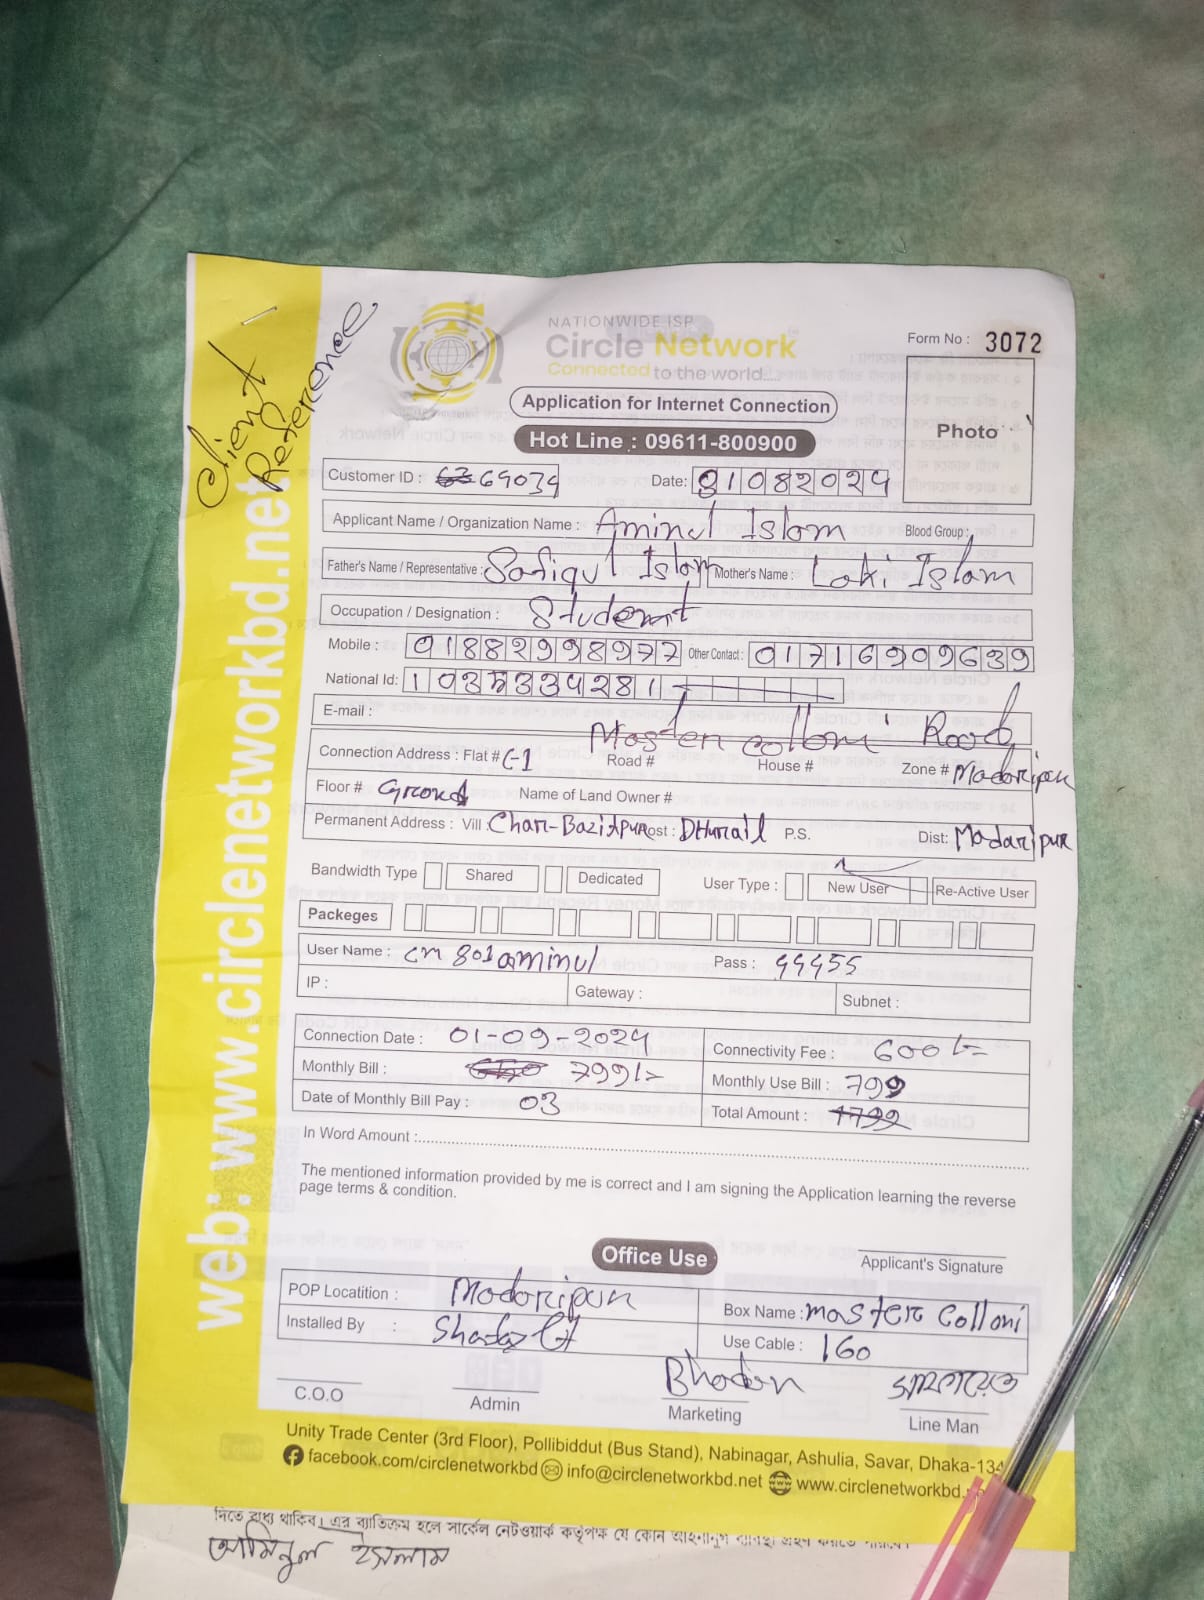 Client
Reference
NATIONWIDE ISP
Circle Network
Connected to the world.....
Form No : 3072
Application for Internet Connection
Hot Line : 09611-800900
Photo
Customer ID : 69034 Date: 01082024
Applicant Name / Organization Name : Aminul Islam Blood Group :
Father's Name / Representative : Safiqul Islam Mother's Name : Laki Islam
Occupation / Designation : Student
Mobile : 01882998977 Other Contact : 01716909639
National Id: 1035334281
E-mail :
Master colloni Road
Connection Address : Flat # C-1 Road # House # Zone # Madoripur
Floor # Ground Name of Land Owner #
Permanent Address : Vill : Char-Bazitpur Post : DHurail P.S. Dist: Madaripur
Bandwidth Type Shared Dedicated User Type : New User Re-Active User
Packeges
User Name : cm801aminul Pass : 44455
IP : Gateway : Subnet :
Connection Date : 01-09-2024 Connectivity Fee : 600/=
Monthly Bill : 799/= Monthly Use Bill : 799
Date of Monthly Bill Pay : 03 Total Amount : 1799
In Word Amount :
The mentioned information provided by me is correct and I am signing the Application learning the reverse
page terms & condition.
Office Use
Applicant's Signature
POP Locatition : Madoripur Box Name : master Colloni
Installed By : Use Cable : 160
Bhodon
C.O.O Admin Marketing Line Man
Unity Trade Center (3rd Floor), Pollibiddut (Bus Stand), Nabinagar, Ashulia, Savar, Dhaka-134
facebook.com/circlenetworkbd info@circlenetworkbd.net www.circlenetworkbd.
web: www.circlenetworkbd.net
দিতে বাধ্য থাকিব। এর ব্যতিক্রম হলে সার্কেল নেটওয়ার্ক কর্তৃপক্ষ যে কোন আইনানুগ ব্যবস্থা গ্রহন করতে পারবে।
আমিনুল ইসলাম